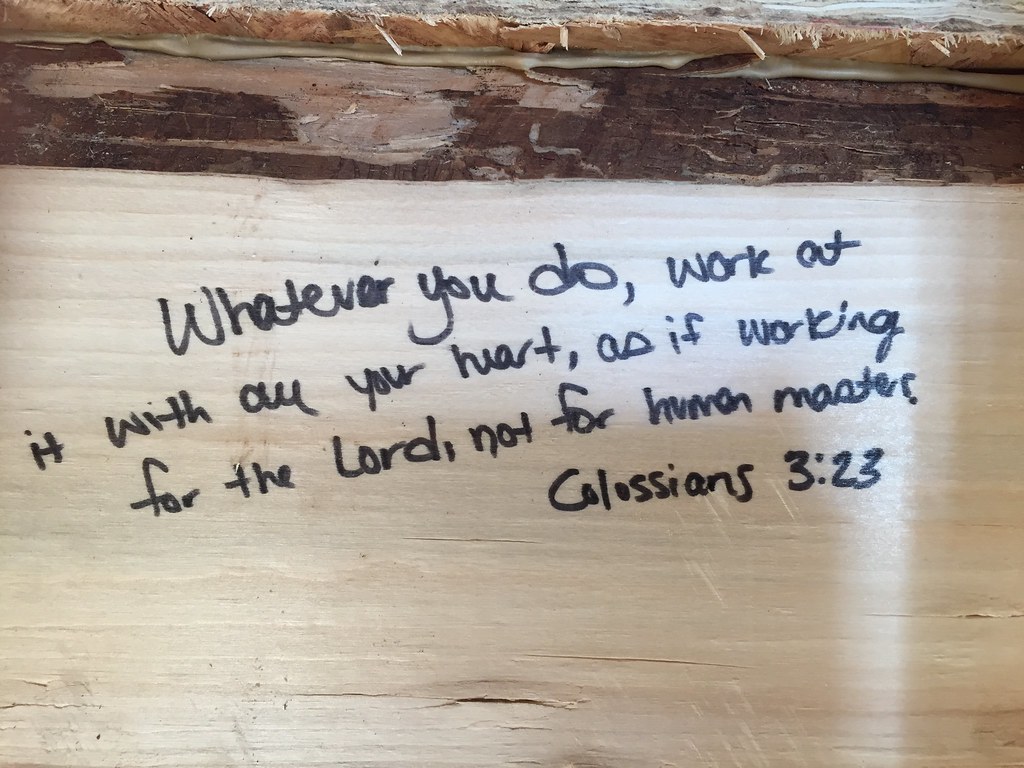 Whatever you do, work at
it with all your heart, as if working
for the Lord, not for human masters.
Colossians 3:23